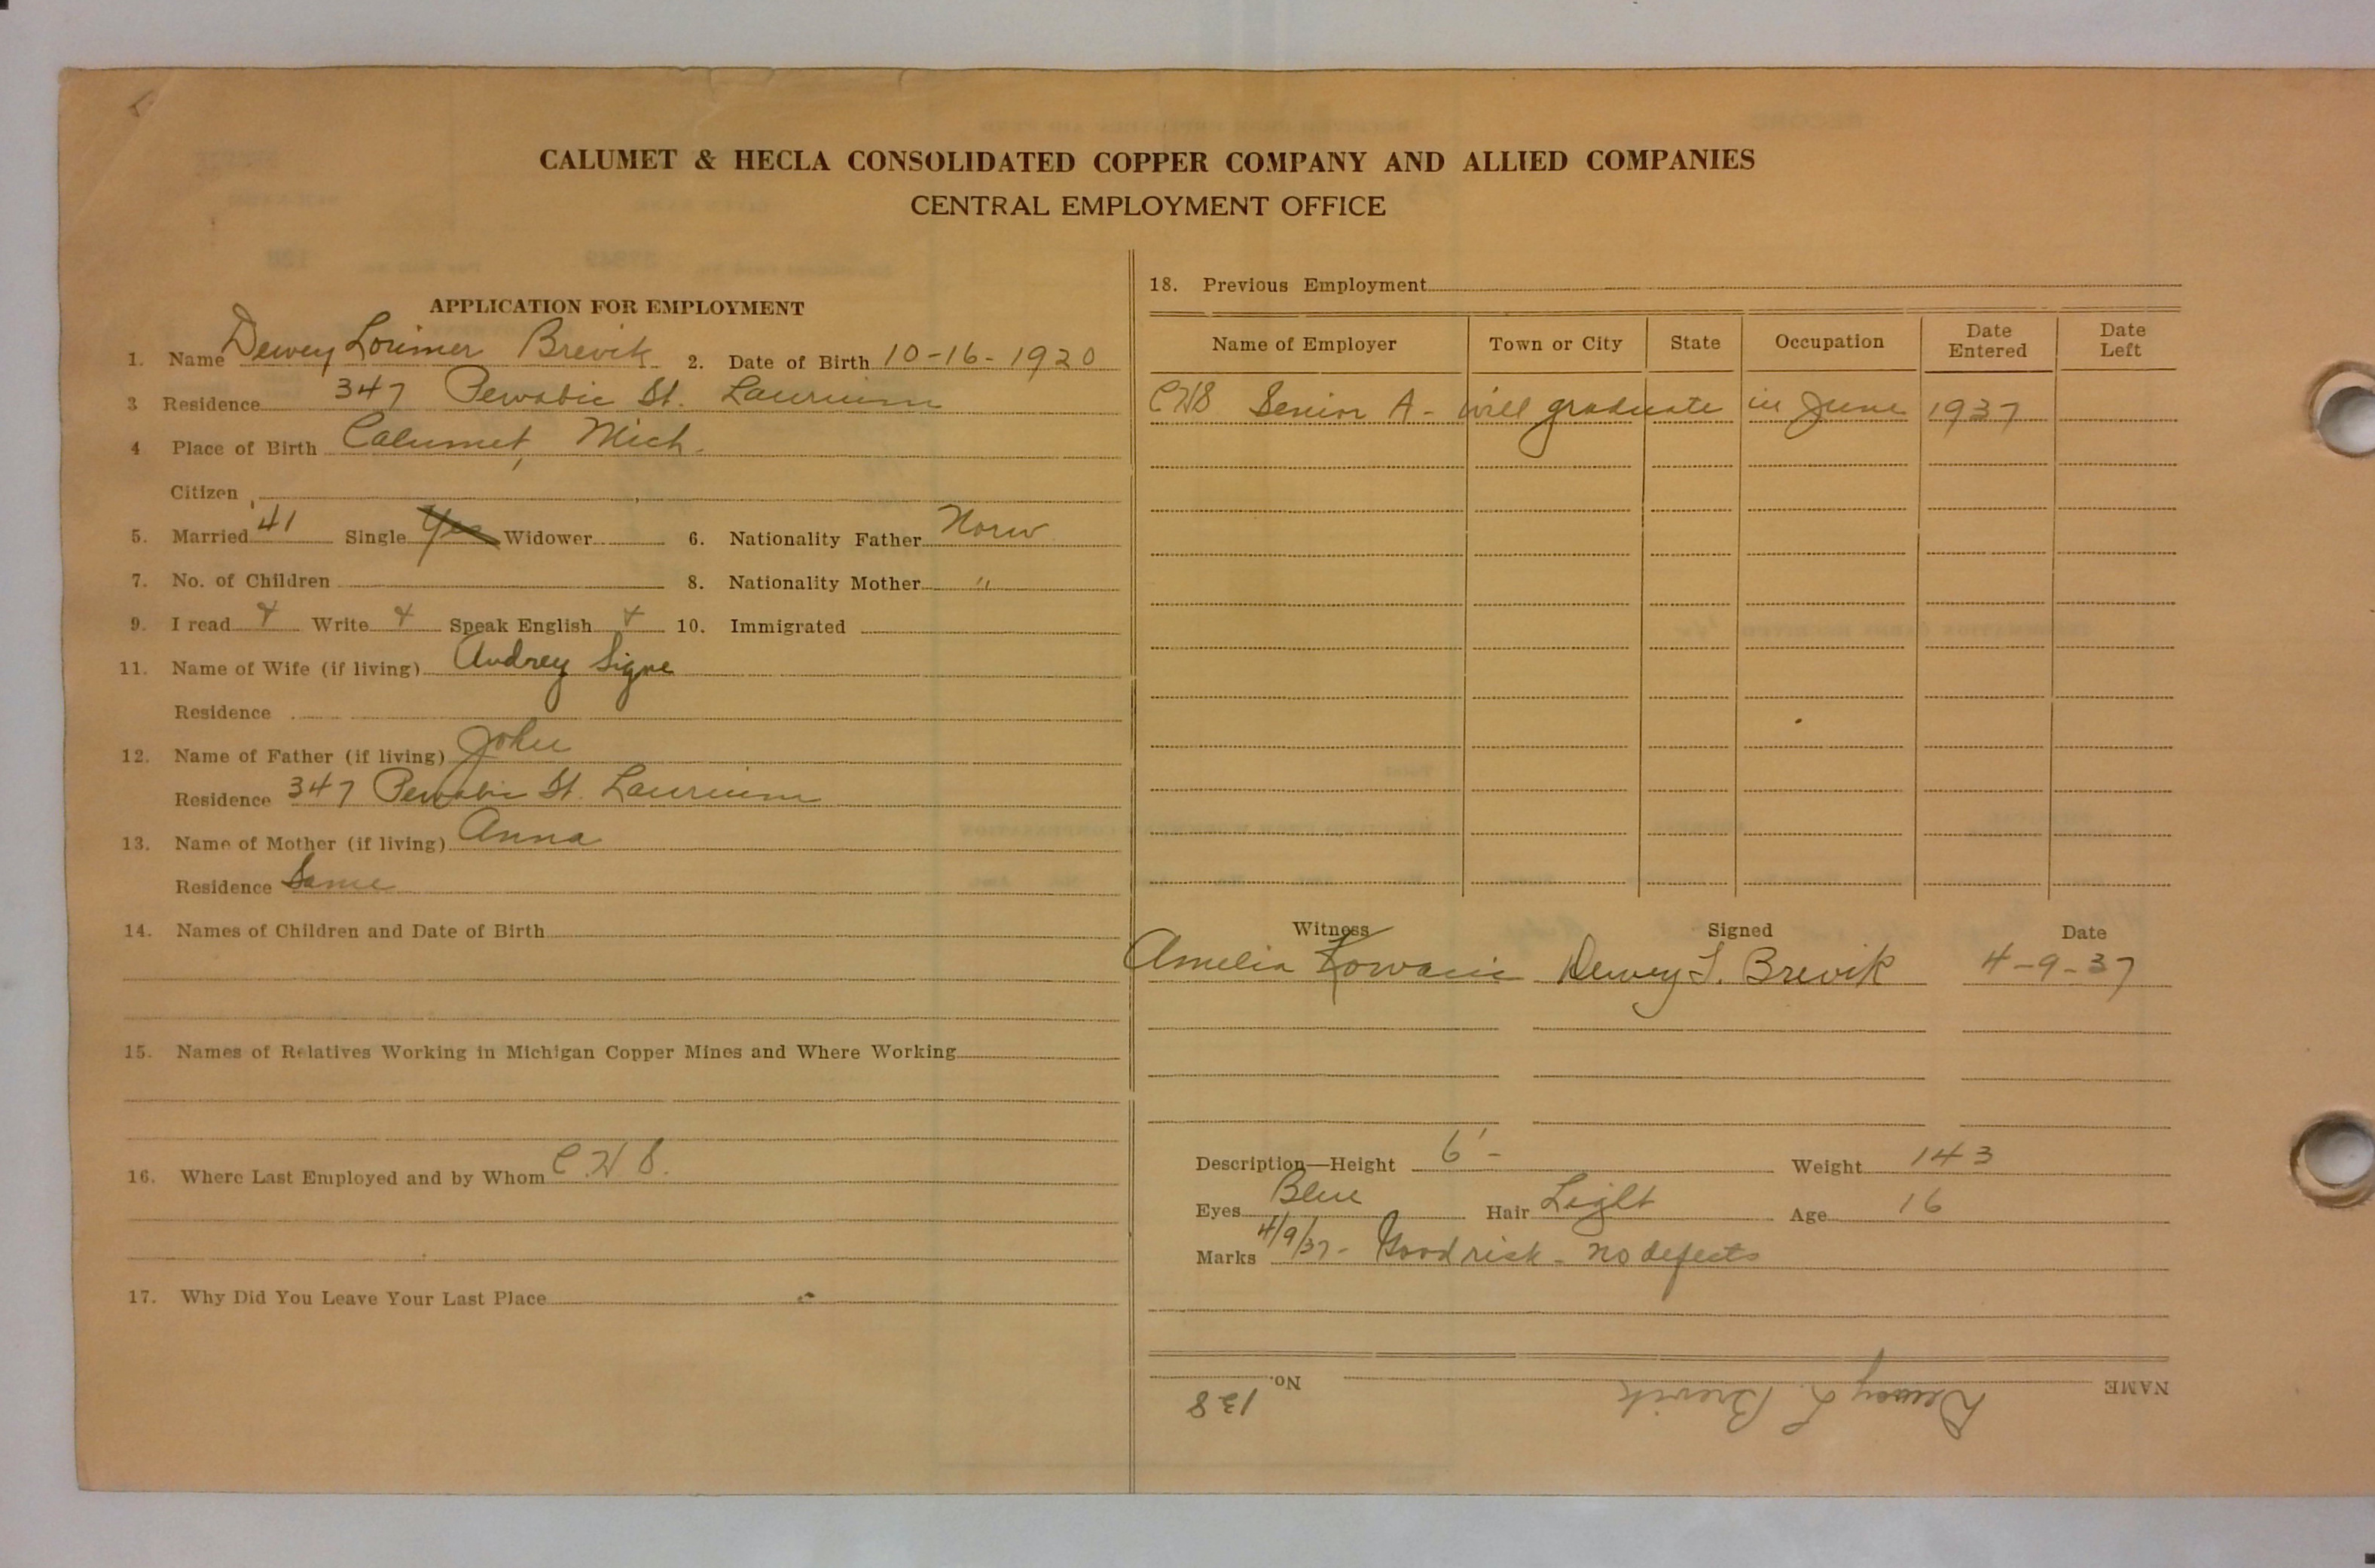 CALUMET & HECLA CONSOLIDATED COPPER COMPANY AND ALLIED COMPANIES
CENTRAL EMPLOYMENT OFFICE
APPLICATION FOR EMPLOYMENT
1. Name Dewey Lorimer Brevik 2. Date of Birth 10-16-1920
3 Residence 347 Pewabic St. Laurium
4 Place of Birth Calumet, Mich.
Citizen
5. Married 41 Single Yes Widower 6. Nationality Father Norw
7. No. of Children 8. Nationality Mother "
9. I read Write Speak English 10. Immigrated
11. Name of Wife (if living) Audrey Signe
Residence
12. Name of Father (if living) John
Residence 347 Pewabic St. Laurium
13. Name of Mother (if living) Anna
Residence Same
14. Names of Children and Date of Birth
15. Names of Relatives Working in Michigan Copper Mines and Where Working
16. Where Last Employed and by Whom C.H.S.
17. Why Did You Leave Your Last Place
18. Previous Employment
Name of Employer Town or City State Occupation Date Entered Date Left
CHS Senior A - will graduate in June 1937
Witness Signed Date
Amelia Dewey L. Brevik 4-9-37
Description—Height 6' - Weight 143
Eyes Blue Hair Light Age 16
Marks 4/9/37 - Good risk - no defects
NAME Dewey L. Brevik No. 138